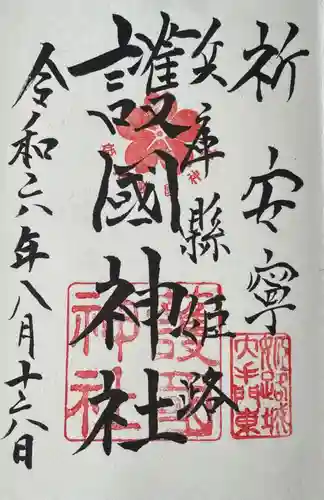 祈 安寧
兵庫縣姫路
護國神社
令和六年八月十六日
護國
神社
姫路城
大手門東